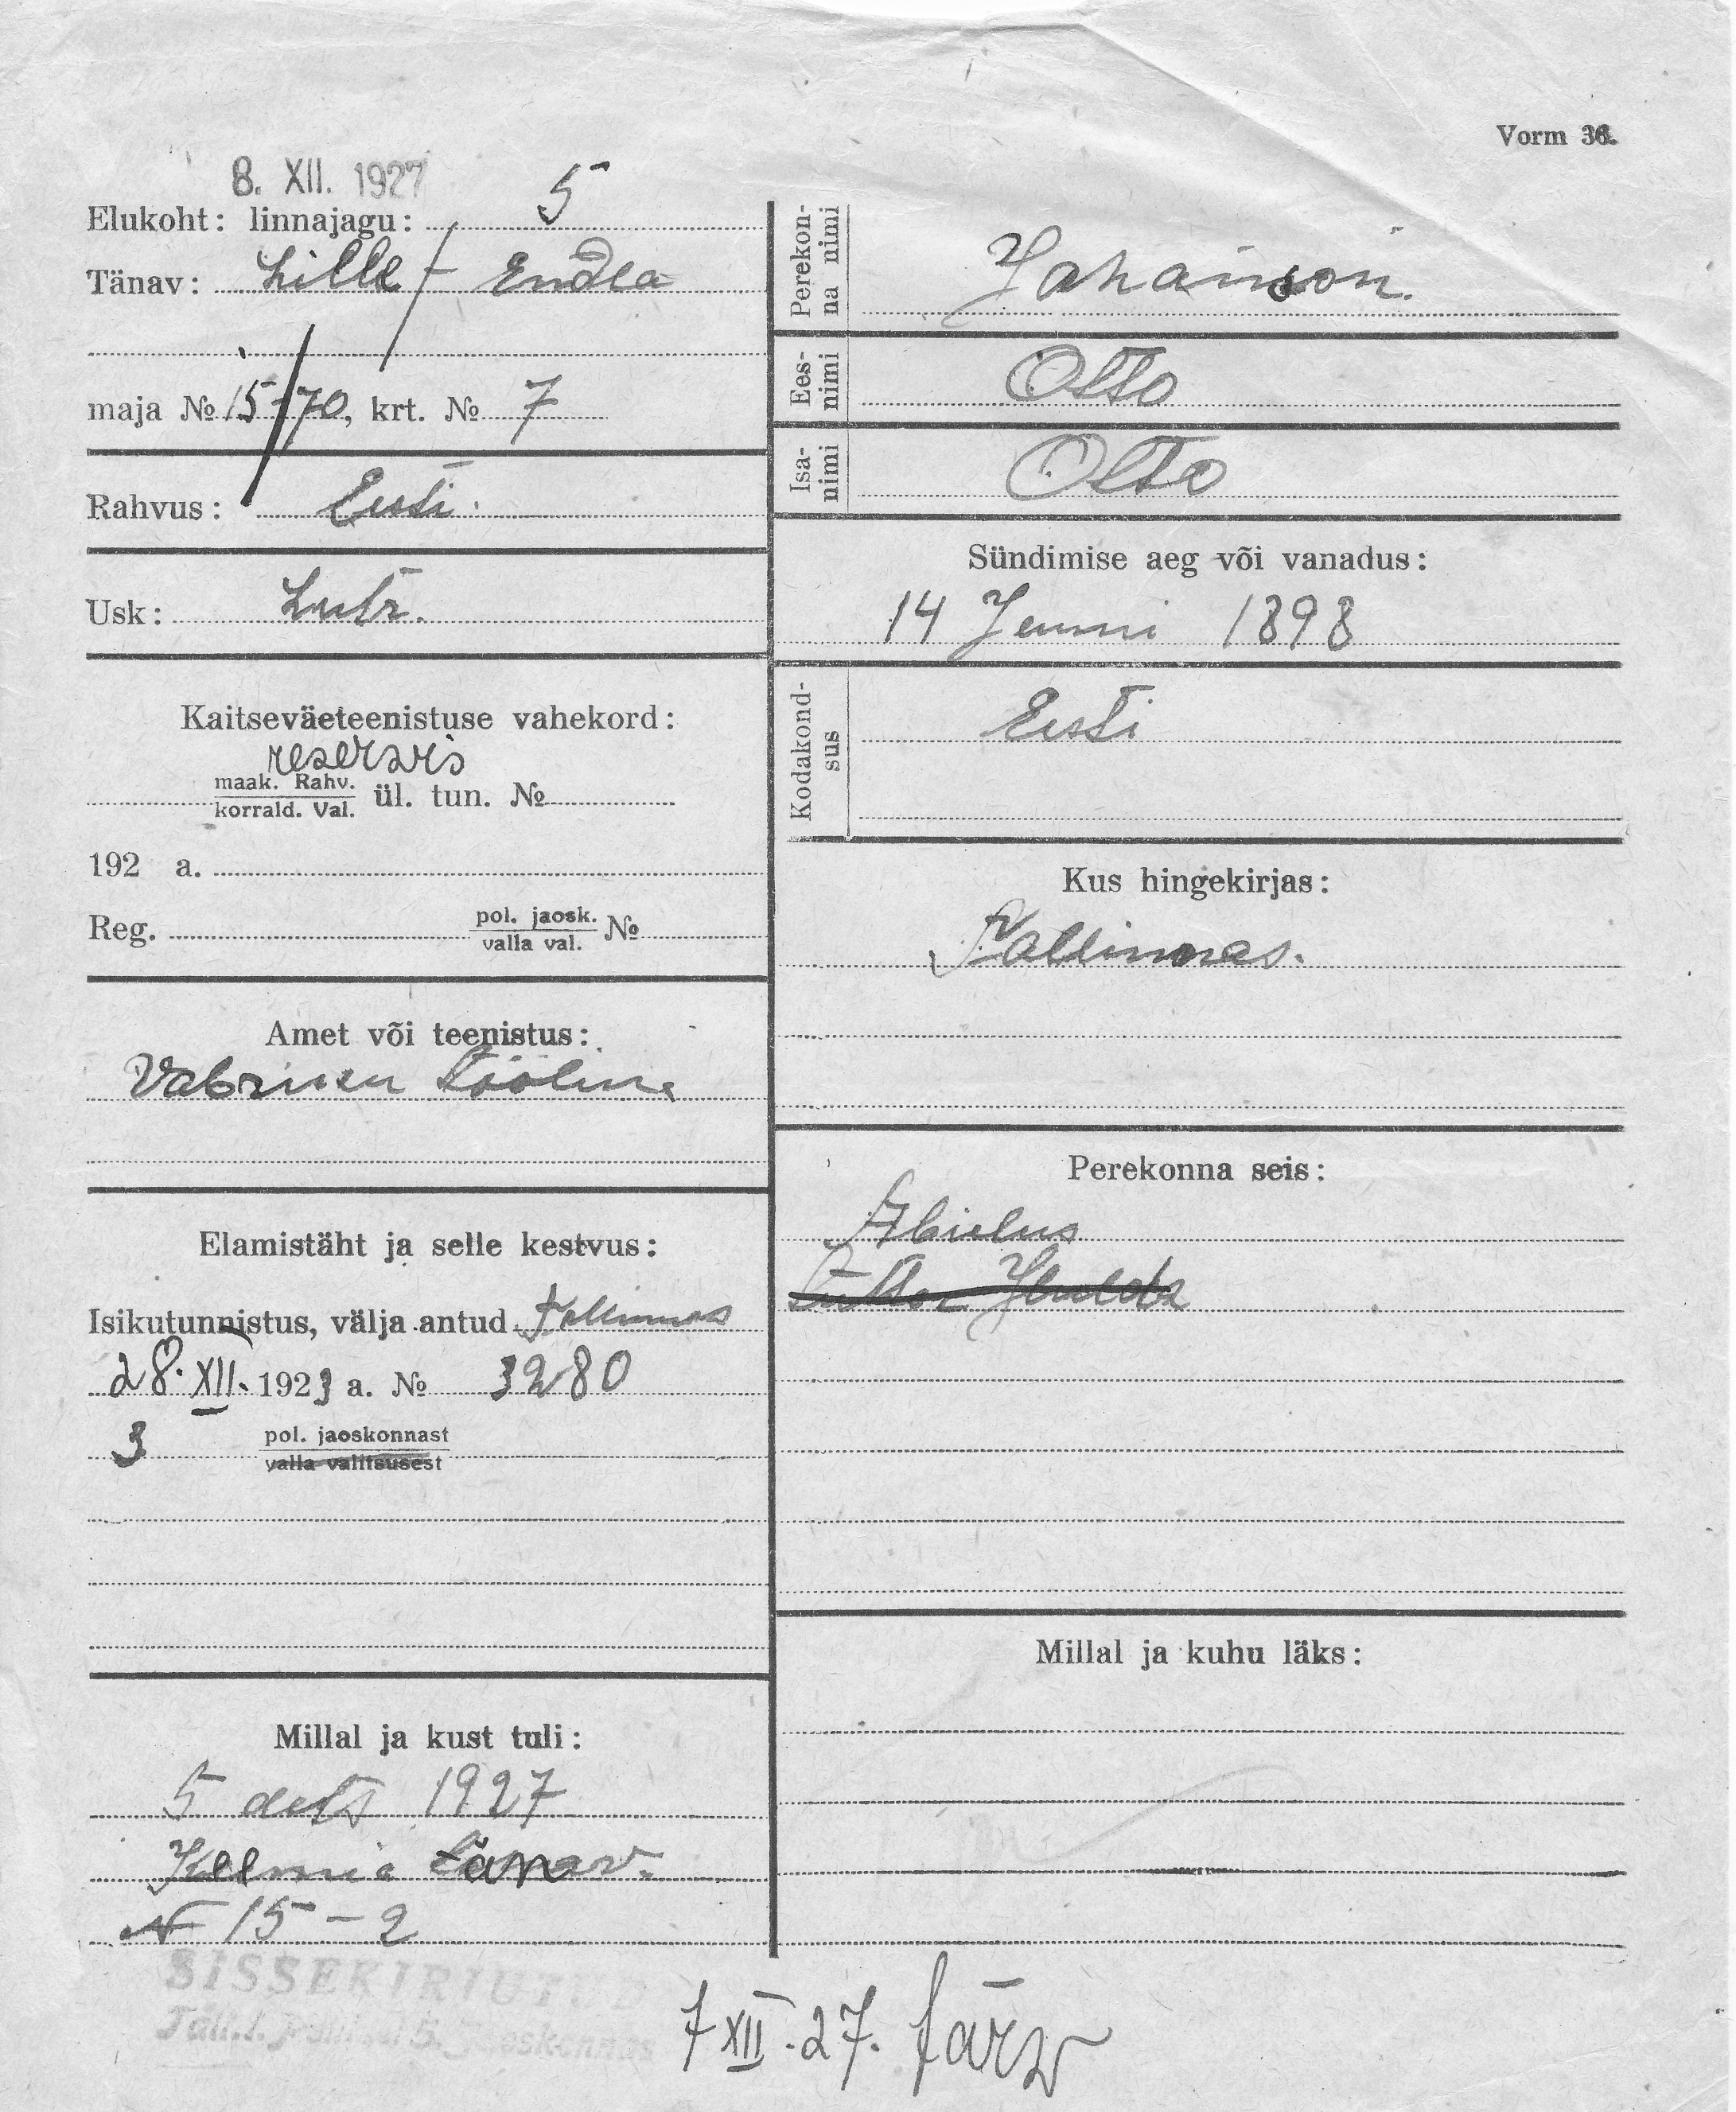 Vorm 36.
8. XII. 1927
Elukoht: linnajagu: 5
Tänav: Lille / Endla
maja № 15-/70, krt. № 7
Rahvus: Eesti.
Usk: Lutr.
Kaitseväeteenistuse vahekord:
reservis
maak. Rahv.
korrald. Val. ül. tun. №
192 a.
Reg. pol. jaosk. №
valla val.
Amet või teenistus:
Vabriku tööline
Elamistäht ja selle kestvus:
Isikutunnistus, välja antud Tallinnas
28. XII. 1923 a. № 3280
3 pol. jaoskonnast
valla valitsusest
Millal ja kust tuli:
5 dets 1927
Keemia tänav.
N 15-2
SISSEKIRJUTUD
Tall. l. Politsei 5. Jaoskonnas
Perekonna nimi
Johainson.
Eesnimi
Otto
Isanimi
Otto
Sündimise aeg või vanadus:
14 Juuni 1898
Kodakondsus
Eesti
Kus hingekirjas:
Tallinnas.
Perekonna seis:
Abielus
Millal ja kuhu läks:
7 XII. 27. Järv